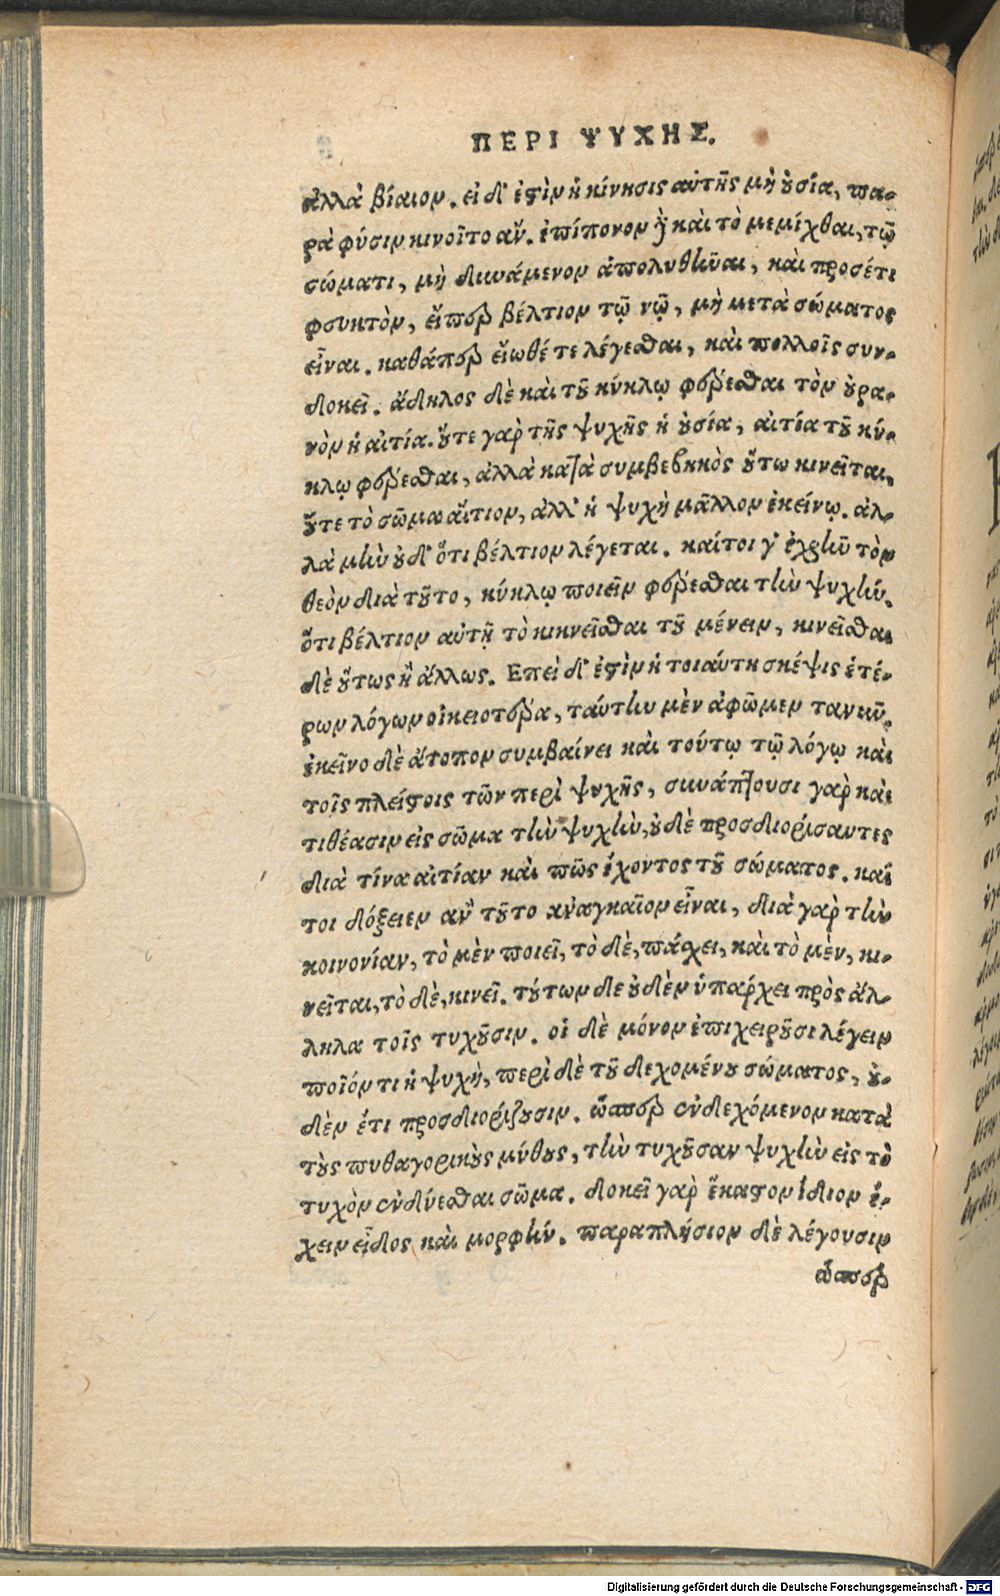 ΠΕΡΙ ΨΥΧΗΣ.
ἀλλὰ βίαιον. εἰ δ' ἐστὶν ἡ κίνησις αὐτῆς μὴ οὐσία, πα-
ρὰ φύσιν κινοῖτο ἄν. ἐπίπονον δὲ καὶ τὸ μεμίχθαι, τῷ
σώματι, μὴ δυνάμενον ἀπολυθῆναι, καὶ προσέτι
φευκτὸν, εἴπερ βέλτιον τῷ νῷ, μὴ μετὰ σώματος
εἶναι. καθάπερ εἴωθέ τε λέγεσθαι, καὶ πολλοῖς συν-
δοκεῖ. ἄδηλος δὲ καὶ τοῦ κύκλῳ φέρεσθαι τὸν οὐρα-
νὸν ἡ αἰτία. οὔτε γὰρ τῆς ψυχῆς ἡ οὐσία, αἰτία τοῦ κύ-
κλῳ φέρεσθαι, ἀλλὰ κατὰ συμβεβηκὸς οὕτω κινεῖται,
οὔτε τὸ σῶμα αἴτιον, ἀλλ' ἡ ψυχὴ μᾶλλον ἐκείνῳ. ἀλ-
λὰ μὴν οὐδ' ὅτι βέλτιον λέγεται. καίτοι γ' ἐχρῆν τὸν
θεὸν διὰ τοῦτο, κύκλῳ ποιεῖν φέρεσθαι τὴν ψυχήν.
ὅτι βέλτιον αὐτῇ τὸ κινεῖσθαι τοῦ μένειν, κινεῖσθαι
δὲ οὕτως ἢ ἄλλως. Επεὶ δ' ἐστὶν ἡ τοιαύτη σκέψις ἑτέ-
ρων λόγων οἰκειοτέρα, ταύτην μὲν ἀφῶμεν τανῦν.
ἐκεῖνο δὲ ἄτοπον συμβαίνει καὶ τούτῳ τῷ λόγῳ καὶ
τοῖς πλείστοις τῶν περὶ ψυχῆς, συνάπτουσι γὰρ καὶ
τιθέασιν εἰς σῶμα τὴν ψυχὴν, οὐδὲ προσδιορίσαντες
διὰ τίνα αἰτίαν καὶ πῶς ἔχοντος τοῦ σώματος. καί
τοι δόξειεν ἂν τοῦτο ἀναγκαῖον εἶναι, διὰ γὰρ τὴν
κοινονίαν, τὸ μὲν ποιεῖ, τὸ δὲ, πάσχει, καὶ τὸ μὲν, κι-
νεῖται, τὸ δὲ, κινεῖ. τούτων δε οὐδὲν ὑπάρχει πρὸς ἄλ-
ληλα τοῖς τυχοῦσιν. οἱ δὲ μόνον ἐπιχειροῦσι λέγειν
ποῖόν τι ἡ ψυχὴ, περὶ δὲ τοῦ δεχομένου σώματος, οὐ-
δὲν ἔτι προσδιορίζουσιν. ὥσπερ ἐνδεχόμενον κατὰ
τοὺς πυθαγορικοὺς μύθους, τὴν τυχοῦσαν ψυχὴν εἰς τὸ
τυχὸν ἐνδύεσθαι σῶμα. δοκεῖ γὰρ ἕκαστον ἴδιον ἔ-
χειν εἶδος καὶ μορφήν. παραπλήσιον δὲ λέγουσιν
ὥσπερ
Digitalisierung gefördert durch die Deutsche Forschungsgemeinschaft - DFG